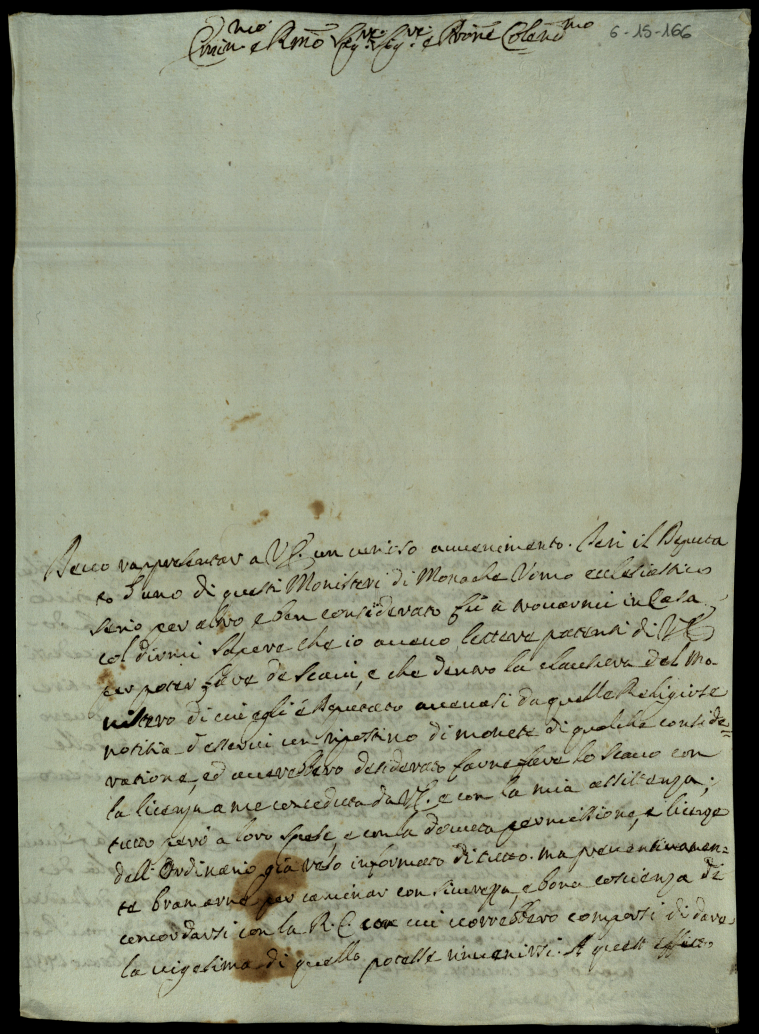 Emin.mo e Rmõ Sig.re Sig.re e Prone Colend.mo
6-15-166
Devo rappresentar a VE. un curioso avvenimento. Ieri il Deputa
to d'uno di questi Monisteri di Monache Uomo ecclesiastico
serio per altro e ben considerato fù à trovarmi in Casa
col dirmi sapere che io avevo lettere patenti di VE
per poter fare de Scavi, e che dentro la clausura del Mo-
nistero di cui egli é Deputato avevasi da quelle Religiose
notitia d'esservi un ripostino di monete di qualche conside=
ratione, ed averebbero desiderato farne fare lo scavo con
la licenza a me conceduta da VE. e con la mia assistenza;
tutto però a loro spese, e con la dovuta permissione, e licenze
dell'Ordinario già reso informato di tutto. ma preventivamen=
te bramarne per caminar con sicurezza, e bona coscienza di
concordarsi con la R. C. con cui vorrebbero comporsi di dare
la vigesima di quello potesse rinvenirsi. A quest effetto